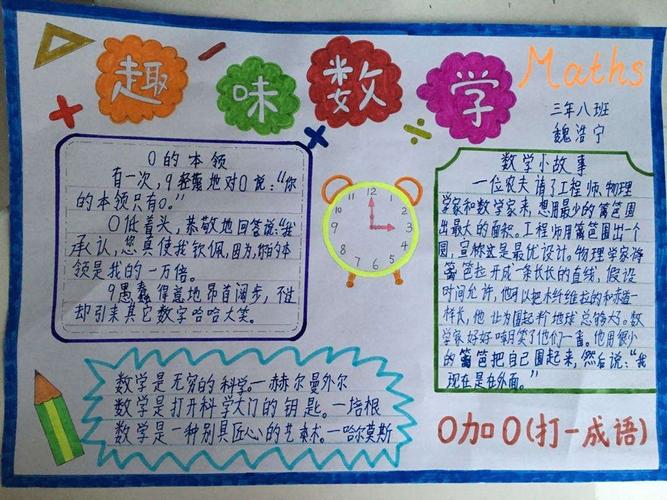 趣味数学
Maths
三年八班
魏浩宁
0的本领
有一次,9轻蔑地对0说:“你
的本领只有0。”
0低着头,恭敬地回答说:“我
承认,您真使我钦佩,因为,你的本
领是我的一万倍。
9愚蠢得意地昂首阔步,不过
却引来其它数字哈哈大笑。
12
3
6
9
数学小故事
一位农夫请了工程师、物理
学家和数学家来,想用最少的篱笆围
出最大的面积。工程师用篱笆围出一个
圆,宣称这是最优设计。物理学家将
篱笆拉开成一条长长的直线,假设
时间允许,他可以把木纤维拉的和赤道一
样长,他认为围起半个地球总够大了。数
学家好好嘲笑了他们一番。他用很少
的篱笆把自己围起来,然后说:“我
现在是在外面。”
数学是无穷的科学。一赫尔曼外尔
数学是打开科学大门的钥匙。一培根
数学是一种别具匠心的艺术。一哈尔莫斯
0加0(打一成语)